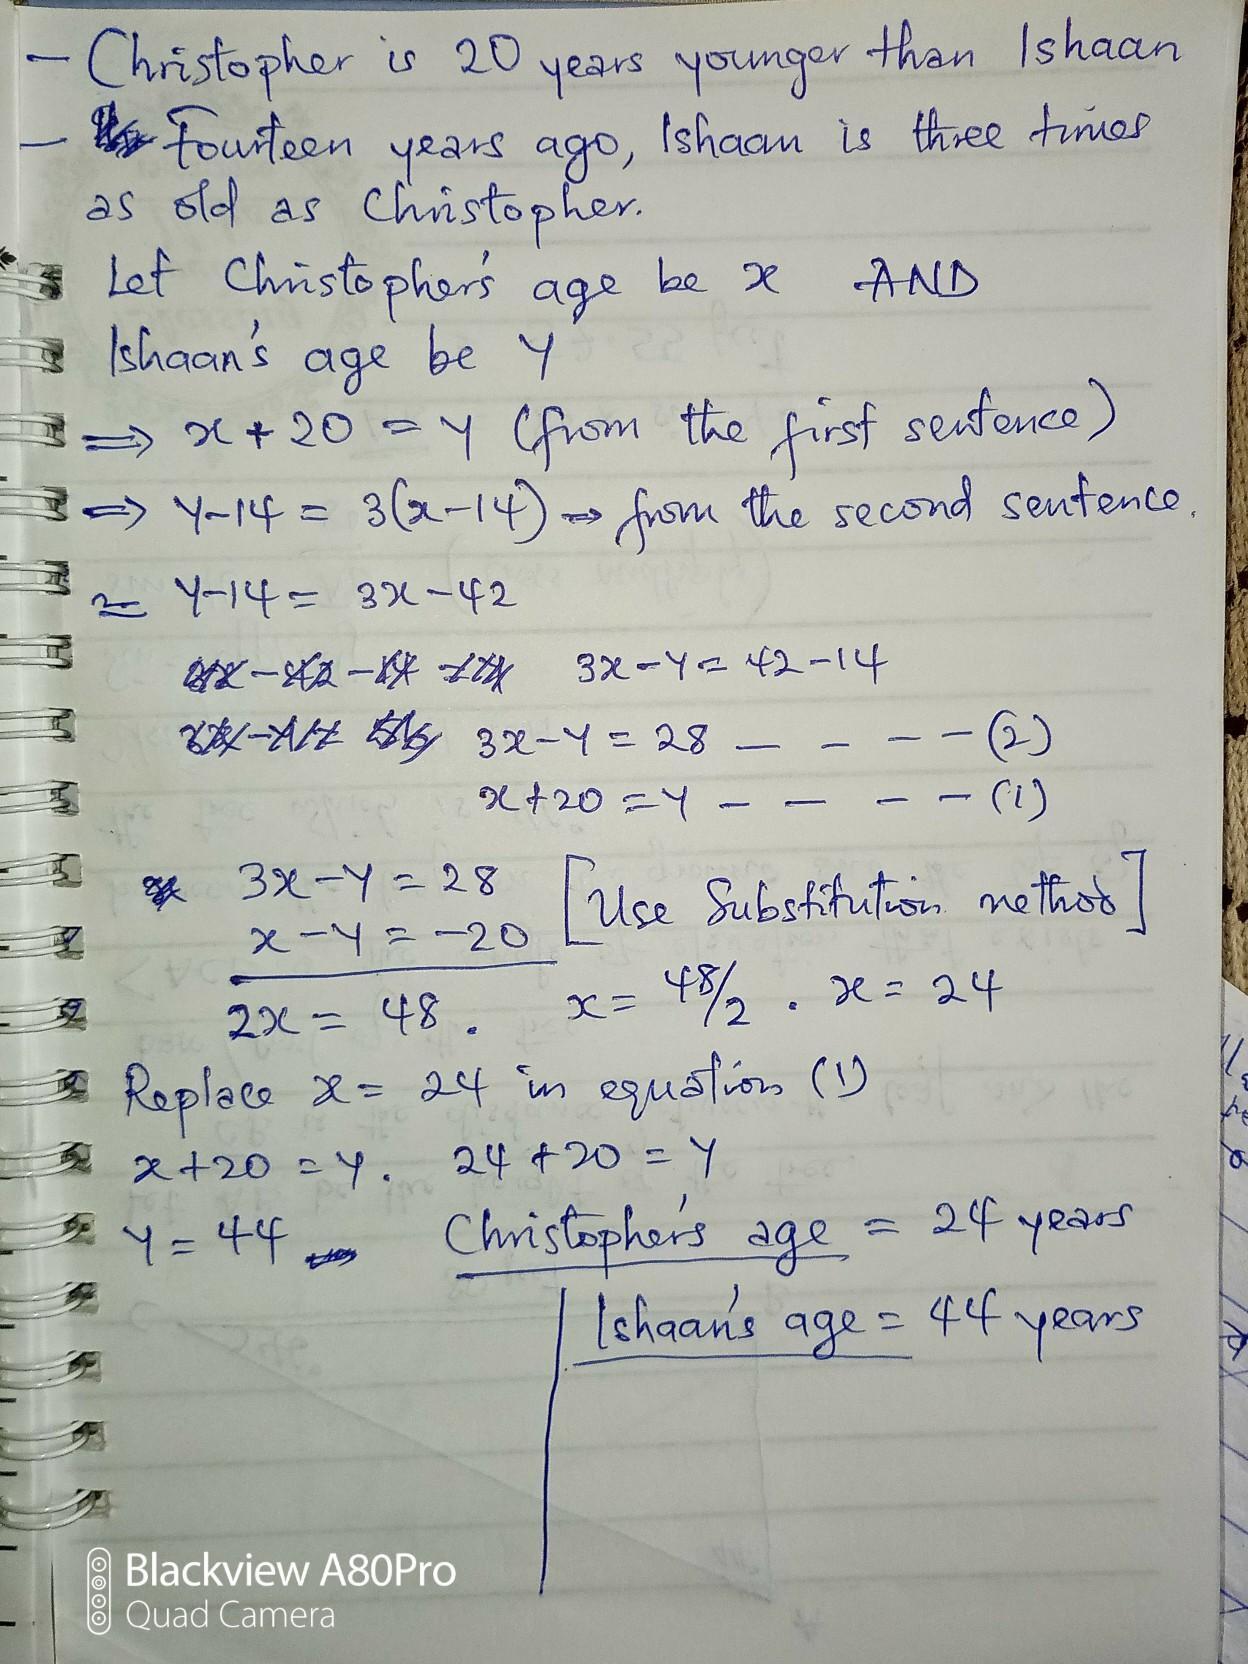 - Christopher is 20 years younger than Ishaan
- Fourteen years ago, Ishaan is three times
as old as Christopher.
Let Christopher's age be x AND
Ishaan's age be y
⇒ x + 20 = y (from the first sentence)
⇒ y-14 = 3(x-14) → from the second sentence.
= y-14 = 3x-42
3x-y = 42-14
3x-y = 28 - - - - (2)
x+20 = y - - - - (1)
3x-y = 28 [Use Substitution method]
x-y = -20
2x = 48. x = 48/2 . x = 24
Replace x = 24 in equation (1)
x+20 = y. 24+20 = y
y = 44 Christopher's age = 24 years
Ishaan's age = 44 years
Blackview A80Pro
Quad Camera